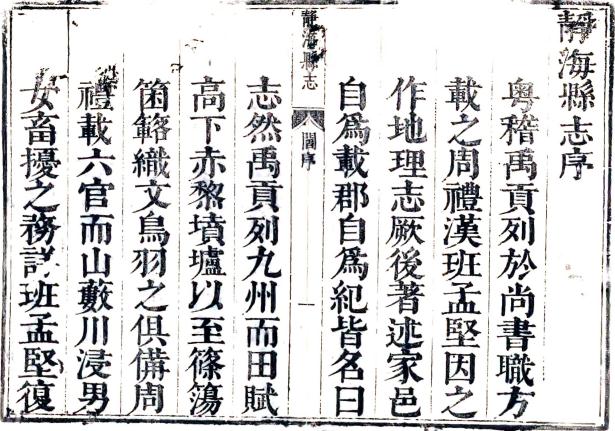 靜海縣志序
粵稽禹貢列於尚書職方
載之周禮漢班孟堅因之
作地理志厥後著述家邑
自爲載郡自爲紀皆名曰
靜海縣志 閻序 一
志然禹貢列九州而田賦
高下赤黎墳壚以至篠簜
箘簵織文鳥羽之俱備周
禮載六官而山藪川浸男
女畜擾之務詳班孟堅復